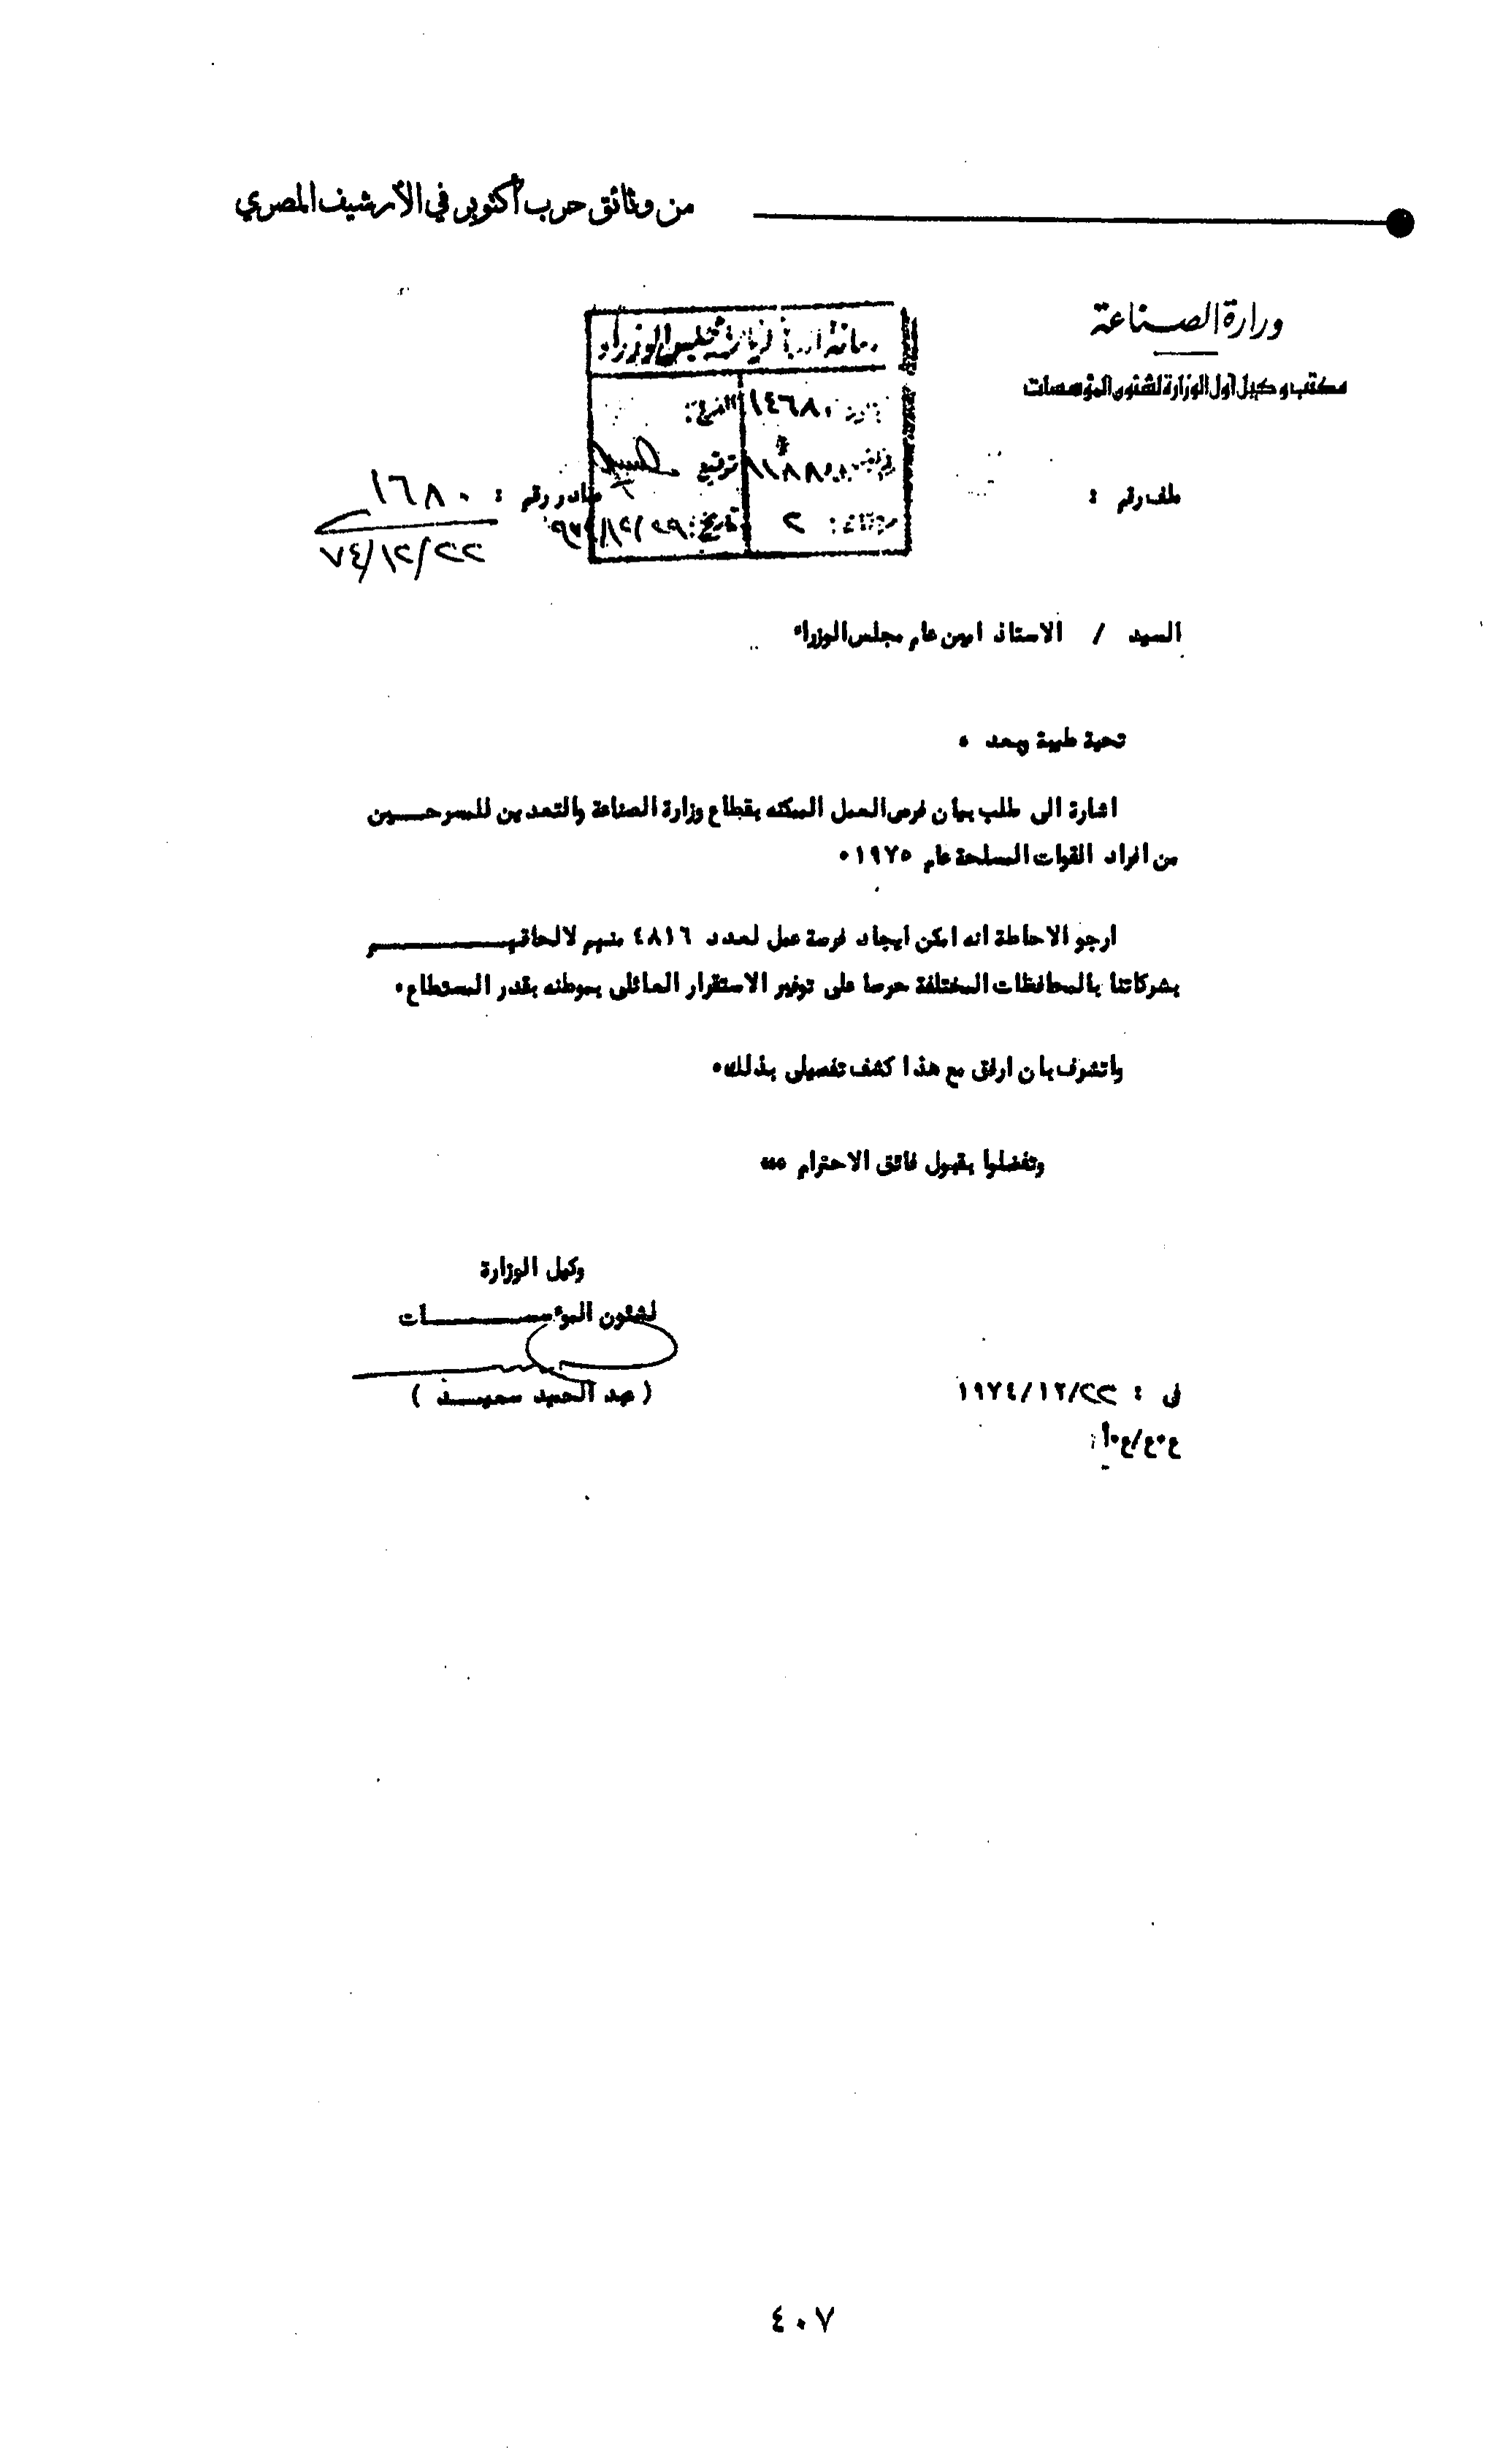 من وثائق حرب أكتوبر في الأرشيف المصري
وزارة الصناعة
مكتب وكيل أول الوزارة لشئون المؤسسات
مجلس الوزراء
١٤٦٨٠
توقيع
تاريخ:
٢
ملف رقم :
صادر رقم : ١٦٨٠
٧٤/١٢/٢٢
السيد / الاستاذ امين عام مجلس الوزراء
تحية طيبة وبعد ٠
اشارة الى طلب بيان فرص العمل الممكنه بقطاع وزارة الصناعة والتعدين للمسرحــــين
من افراد القوات المسلحة عام ١٩٧٥ ٠
ارجو الاحاطة انه امكن ايجاد فرصة عمل لعدد ٤٨١٦ منهم لالحاقهـــــــــم
بشركاتنا بالمحافظات المختلفة حرصا على توفير الاستقرار العائلى بموطنه بقدر المستطاع٠
واتشرف بان ارفق مع هذا كشف تفصيلى بذلك٠
وتفضلوا بقبول فائق الاحترام ٠٠٠
وكيل الوزارة
لشئون المؤســـــــــات
( عبد الحميد سعيـــد )
فى : ١٩٧٤/١٢/٢٢
ع٠ع/ع٠أ
٤٠٧